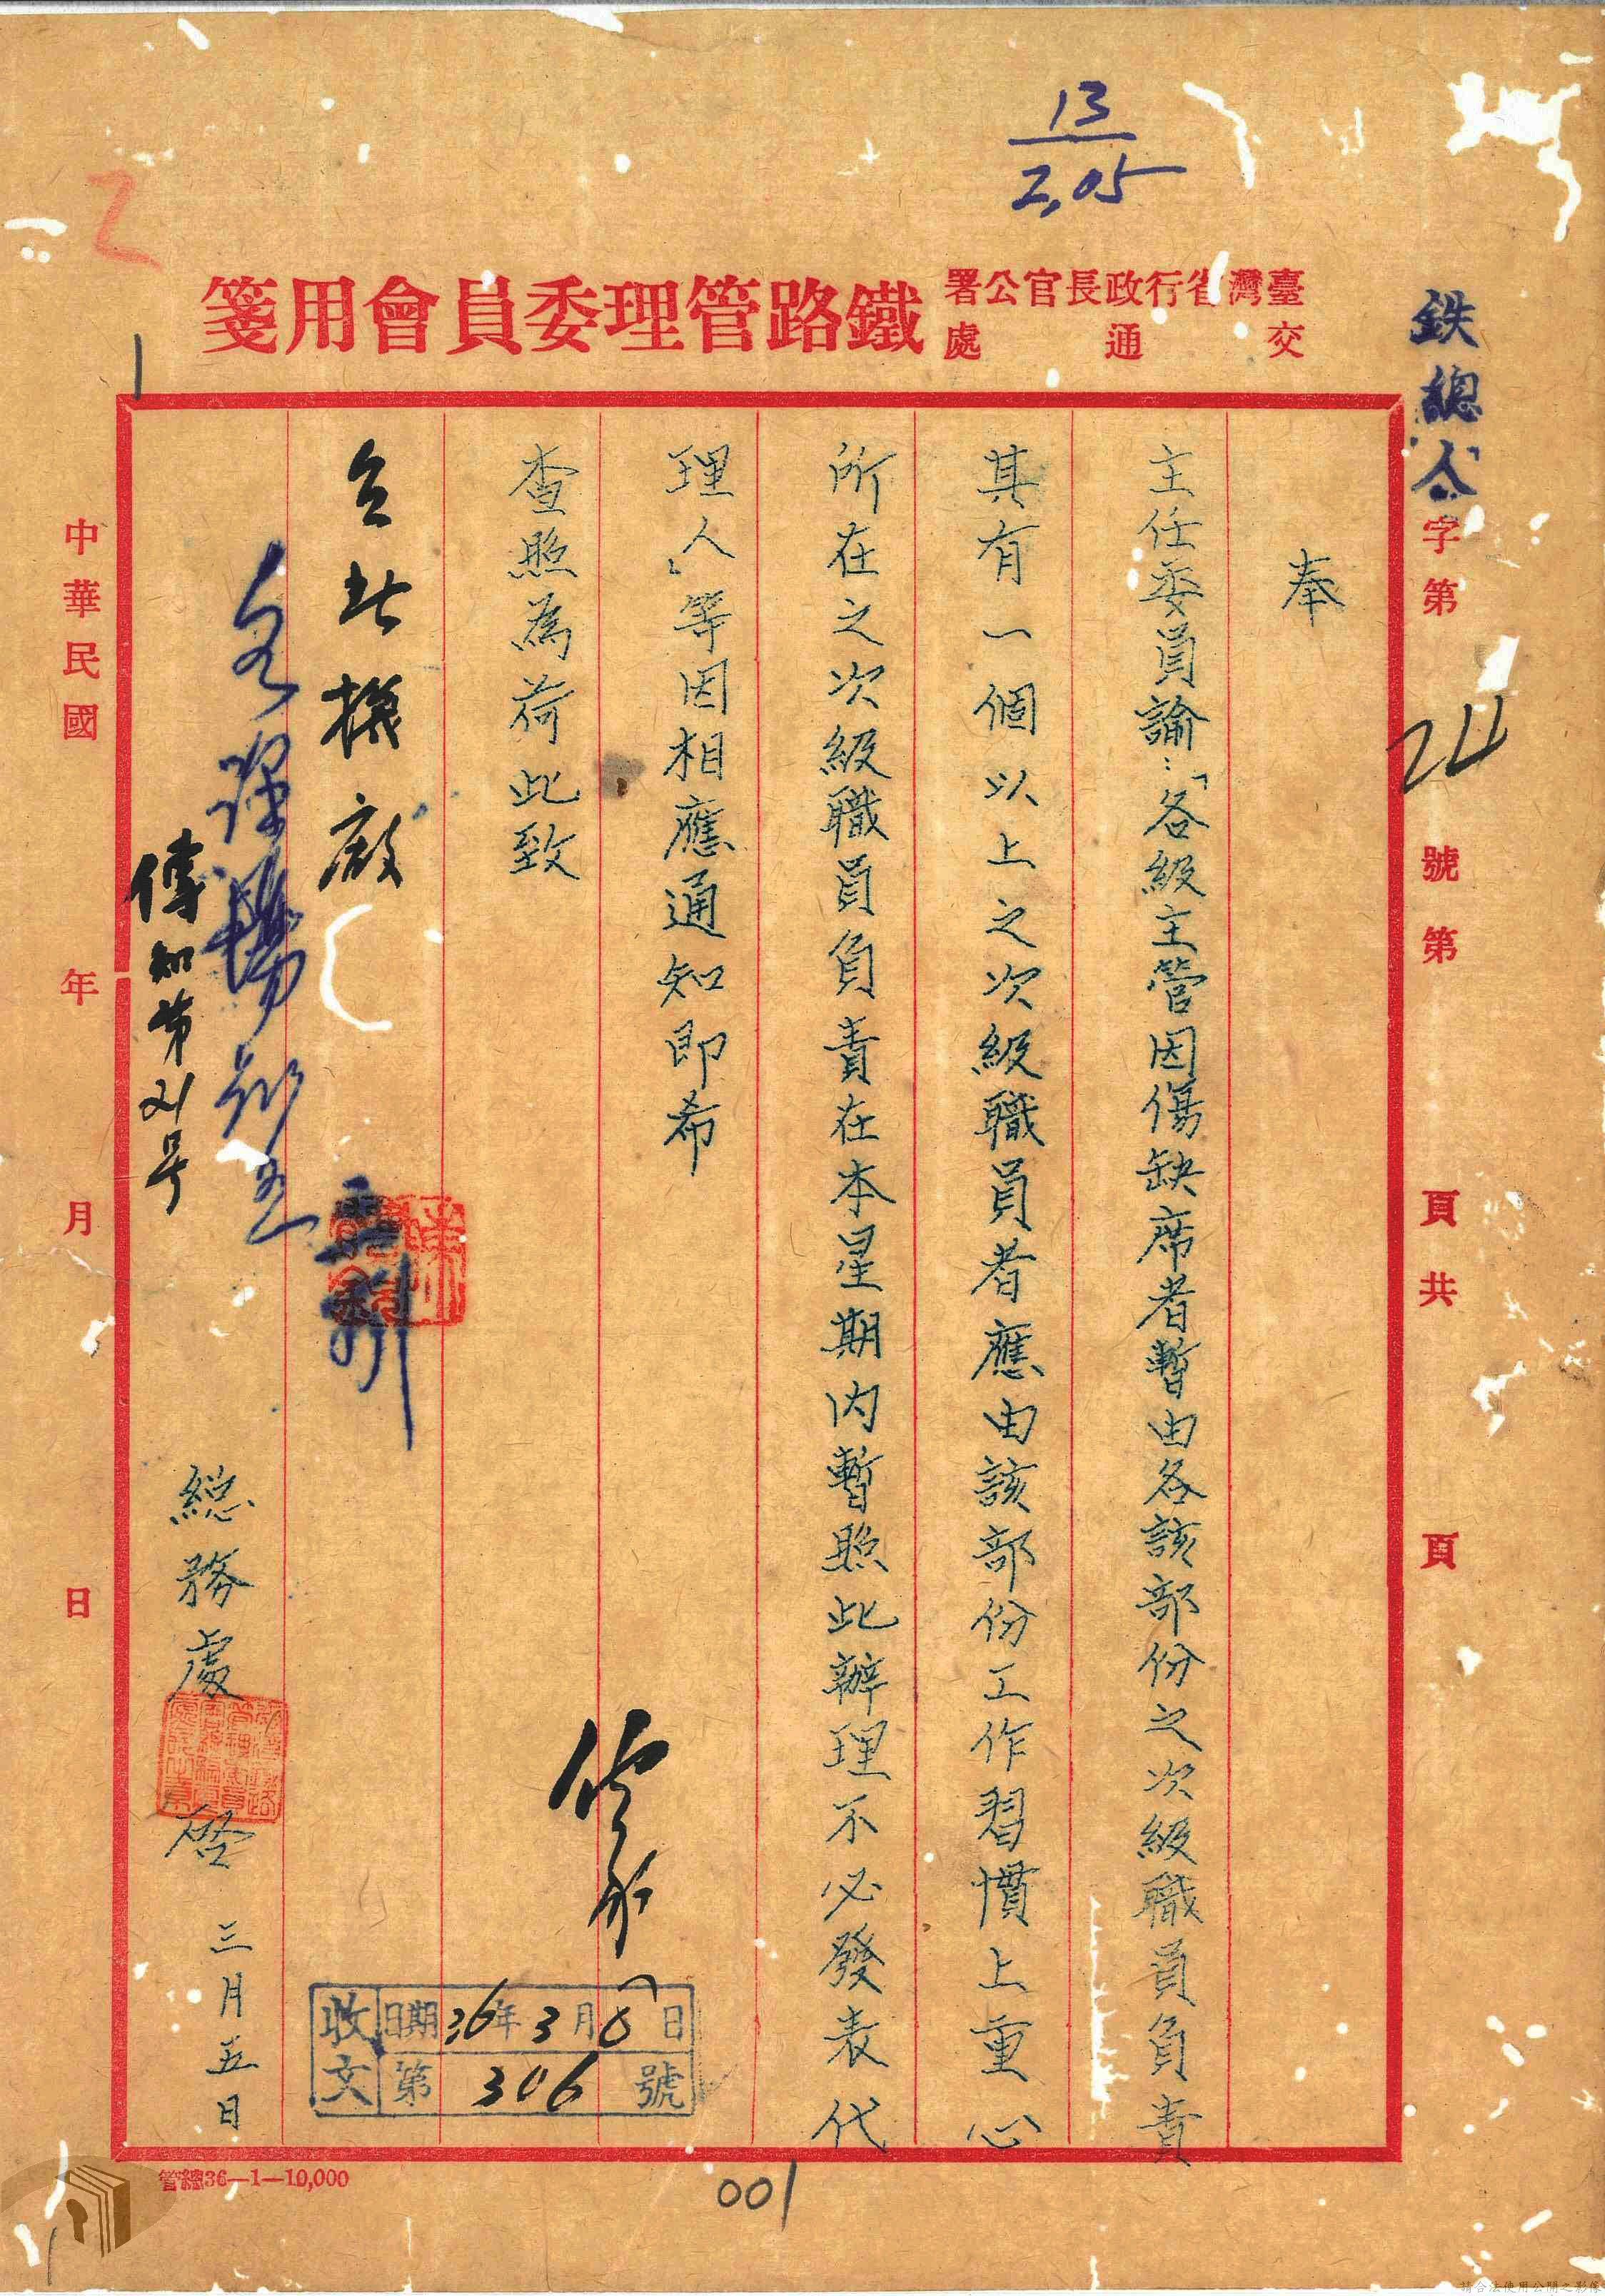 13
2,05
臺灣省行政長官公署
交通處
鐵路管理委員會用箋
鉄總人字第24號第頁共頁
奉
主任委員諭：「各級主管因傷缺席者暫由各該部份之次級職員負責
其有一個以上之次級職員者應由該部份工作習慣上重心
所在之次級職員負責在本星期内暫照此辦理不必發表代
理人」等因相應通知即希
查照為荷此致
台北機廠
傳知第21号
総務處
啓
三月五日
收文
日期36年3月6日
第306號
中華民國年月日
管總36—1—10,000
001